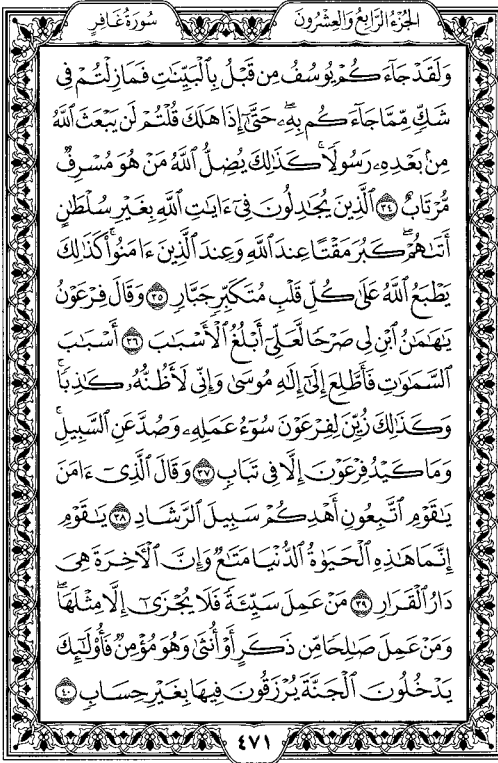 الجزء الرابع والعشرون سورة غافر
وَلَقَدْ جَآءَكُمْ يُوسُفُ مِن قَبْلُ بِٱلْبَيِّنَٰتِ فَمَا زِلْتُمْ فِى
شَكٍّ مِّمَّا جَآءَكُم بِهِۦۖ حَتَّىٰٓ إِذَا هَلَكَ قُلْتُمْ لَن يَبْعَثَ ٱللَّهُ
مِنۢ بَعْدِهِۦ رَسُولًاۚ كَذَٰلِكَ يُضِلُّ ٱللَّهُ مَنْ هُوَ مُسْرِفٌ
مُّرْتَابٌ ٣٤ ٱلَّذِينَ يُجَٰدِلُونَ فِىٓ ءَايَٰتِ ٱللَّهِ بِغَيْرِ سُلْطَٰنٍ
أَتَىٰهُمْۖ كَبُرَ مَقْتًا عِندَ ٱللَّهِ وَعِندَ ٱلَّذِينَ ءَامَنُوا۟ۚ كَذَٰلِكَ
يَطْبَعُ ٱللَّهُ عَلَىٰ كُلِّ قَلْبِ مُتَكَبِّرٍ جَبَّارٍ ٣٥ وَقَالَ فِرْعَوْنُ
يَٰهَٰمَٰنُ ٱبْنِ لِى صَرْحًا لَّعَلِّىٓ أَبْلُغُ ٱلْأَسْبَٰبَ ٣٦ أَسْبَٰبَ
ٱلسَّمَٰوَٰتِ فَأَطَّلِعَ إِلَىٰٓ إِلَٰهِ مُوسَىٰ وَإِنِّى لَأَظُنُّهُۥ كَٰذِبًاۚ
وَكَذَٰلِكَ زُيِّنَ لِفِرْعَوْنَ سُوٓءُ عَمَلِهِۦ وَصُدَّ عَنِ ٱلسَّبِيلِۚ
وَمَا كَيْدُ فِرْعَوْنَ إِلَّا فِى تَبَابٍ ٣٧ وَقَالَ ٱلَّذِىٓ ءَامَنَ
يَٰقَوْمِ ٱتَّبِعُونِ أَهْدِكُمْ سَبِيلَ ٱلرَّشَادِ ٣٨ يَٰقَوْمِ
إِنَّمَا هَٰذِهِ ٱلْحَيَوٰةُ ٱلدُّنْيَا مَتَٰعٌ وَإِنَّ ٱلْءَاخِرَةَ هِىَ
دَارُ ٱلْقَرَارِ ٣٩ مَنْ عَمِلَ سَيِّئَةً فَلَا يُجْزَىٰٓ إِلَّا مِثْلَهَاۖ
وَمَنْ عَمِلَ صَٰلِحًا مِّن ذَكَرٍ أَوْ أُنثَىٰ وَهُوَ مُؤْمِنٌ فَأُو۟لَٰٓئِكَ
يَدْخُلُونَ ٱلْجَنَّةَ يُرْزَقُونَ فِيهَا بِغَيْرِ حِسَابٍ ٤٠
٤٧١